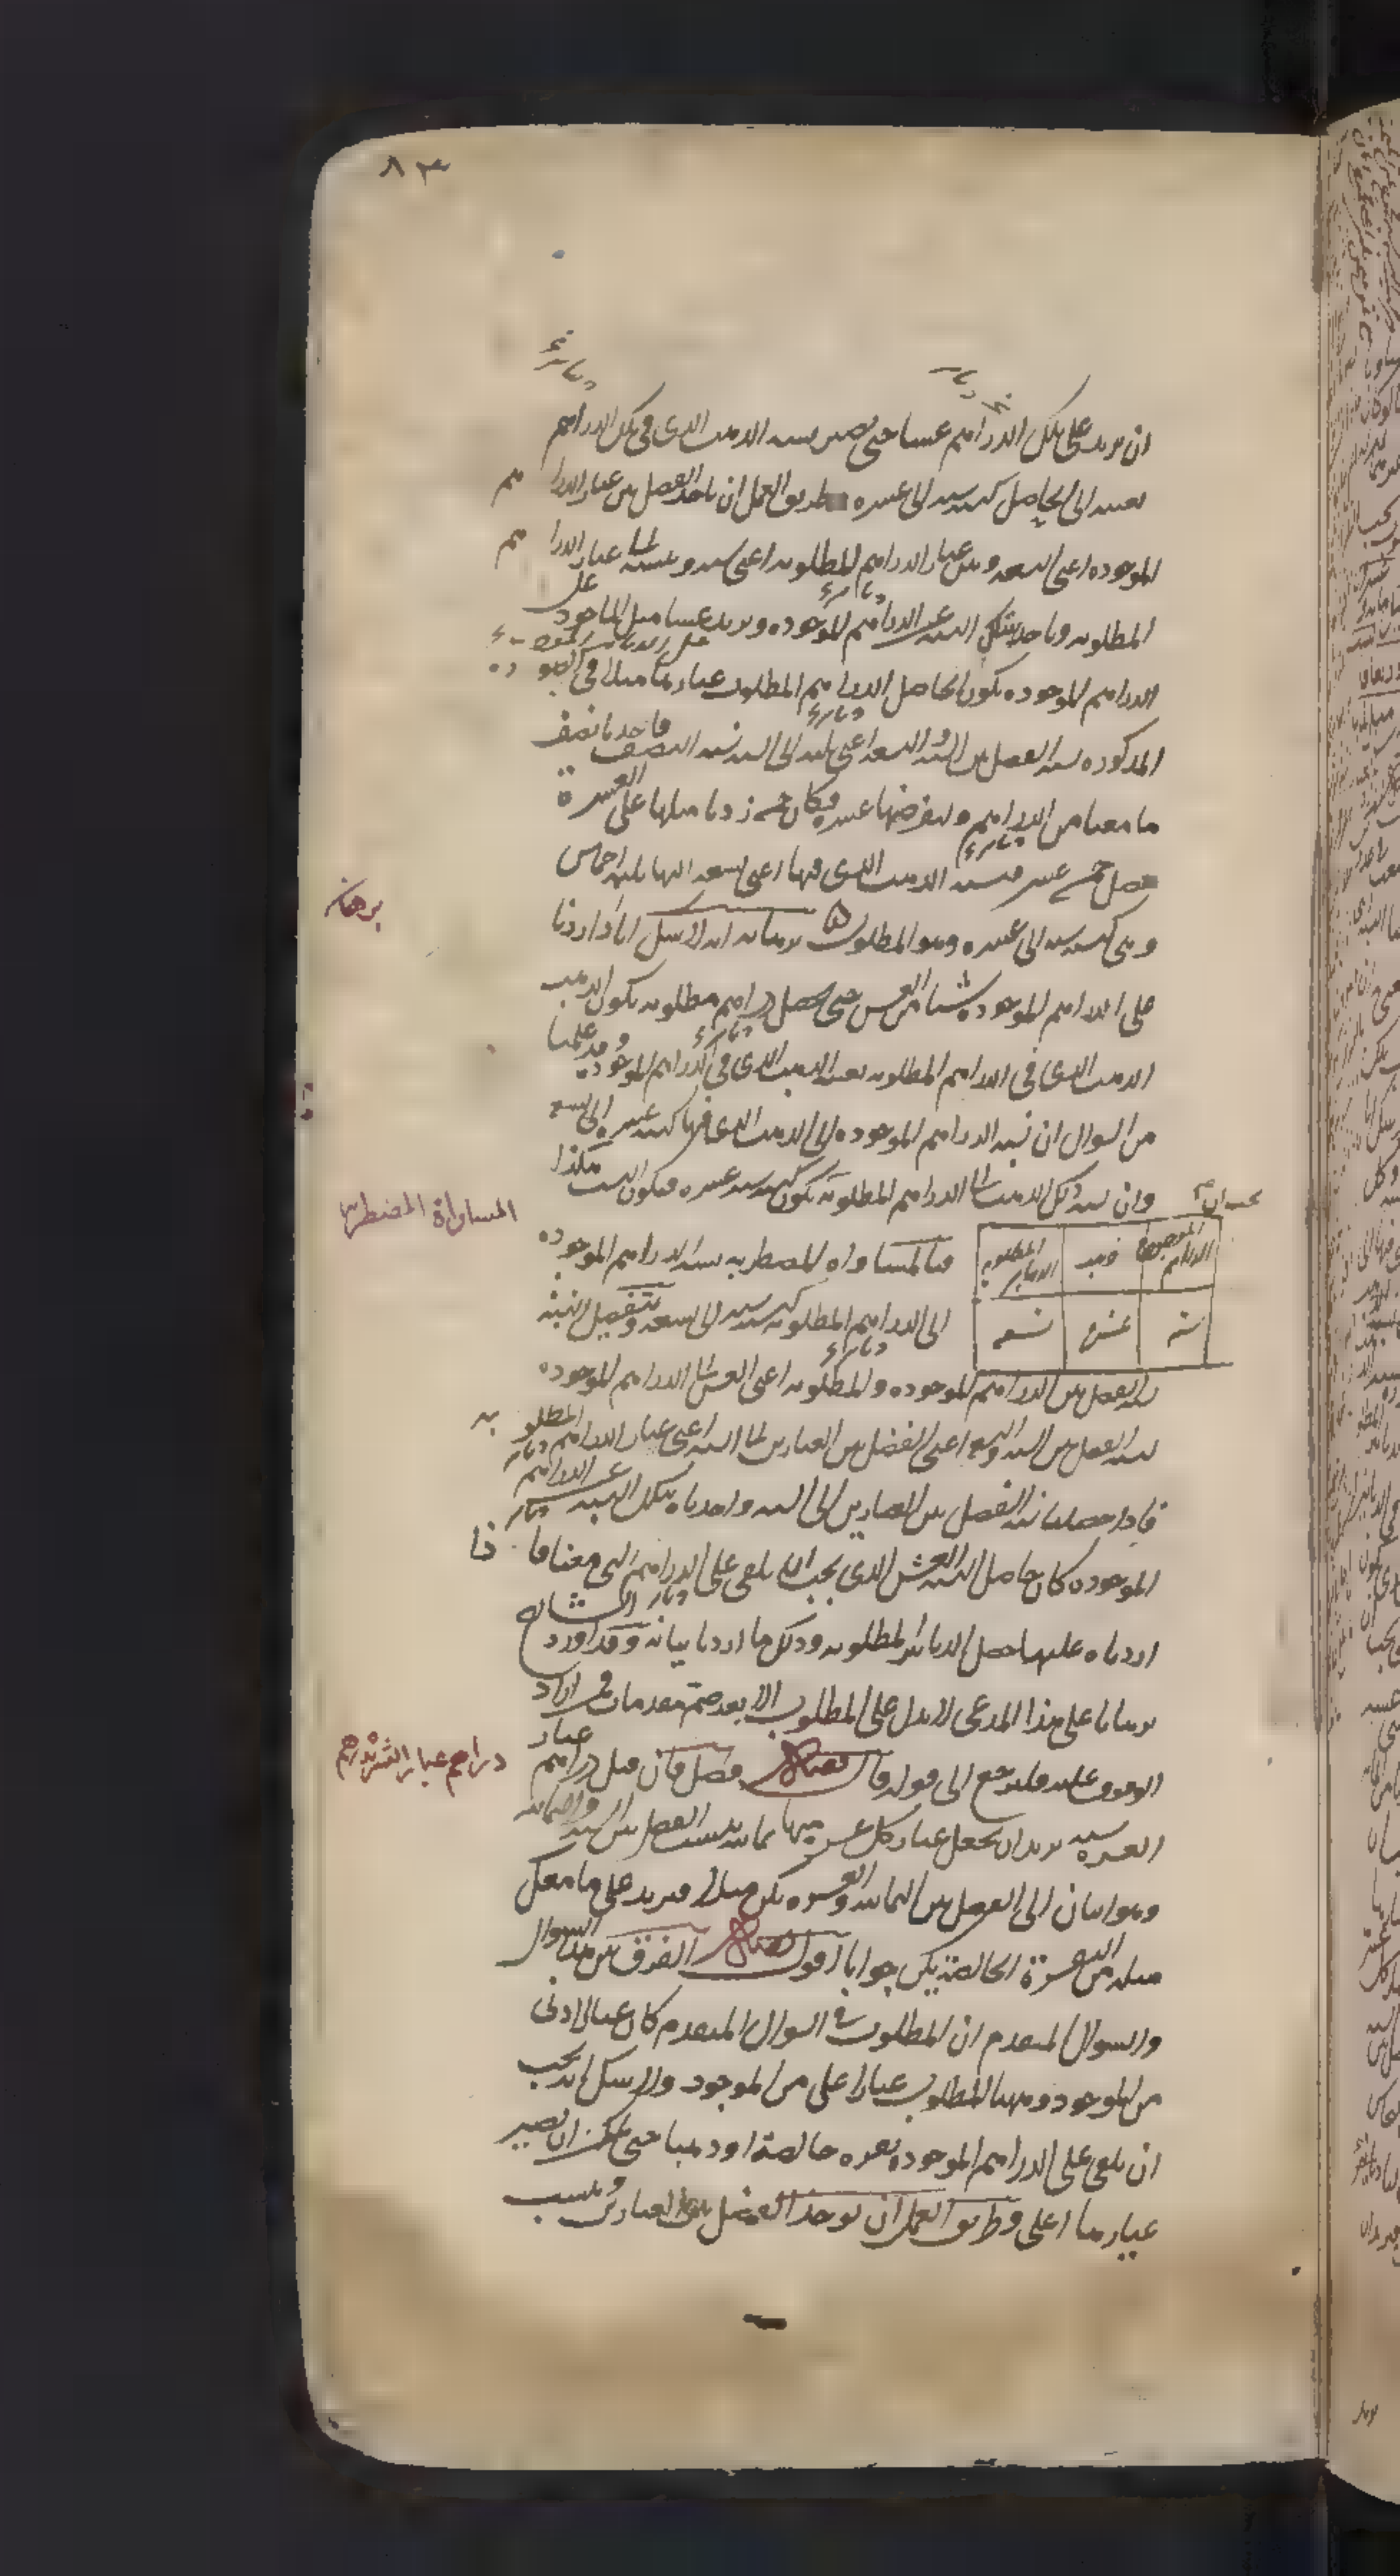 ٨٣
ان يزيد على تلك الدراهم غشا حتى يصير نسبة الذهب الذى فى تلك الدراهم
بعينه الى الحاصل كنسبة ستة الى عشرة وطريق العمل ان ناخذ الفضل بين عيار الدراهم
الموجودة اعنى التسعة وبين عيار الدراهم المطلوبة اعنى ستة وننسبه الى عيار الدراهم
المطلوبة وناخذ بتلك النسبة من الدراهم الموجودة ونزيد غشا مثل الماخوذ على
الدراهم الموجودة يكون الحاصل الدراهم المطلوب عيارها مثلا فى الصورة
المذكورة نسبة الفضل بين الستة والتسعة اعنى ثلثة الى الستة نسبة النصف فاخذنا نصف
ما معنا من الدراهم ولنفرضها عشرة فكان خمسة زدنا مثلها على العشرة
حصل خمسة عشر فنسبة الذهب الذى فيها اعنى تسعة اليها ثلثة اخماس
وهى كنسبة ستة الى عشرة وهو المطلوب برهانه انه لا شك انا اذا زدنا
برهان
على الدراهم الموجودة شيئا من الغش حتى حصل دراهم مطلوبة يكون الذهب
الذهب الذى فى الدراهم المطلوبة بعينه الذهب الذى فى الدراهم الموجودة وقد علمنا
من السوال ان نسبة الدراهم الموجودة الى الذهب الذى فيها كنسبة عشرة الى تسعة
وان نسبة ذلك الذهب الى الدراهم المطلوبة يجب ان تكون كنسبة ستة الى عشرة فيكون النسب هكذا
المساواة المضطربة
فبالمساواة المضطربة نسبة الدراهم الموجودة
الدراهم الموجودة ذهب الدنانير المطلوبة
ستة عشرة تسعة
الى الدراهم المطلوبة كنسبة ستة الى تسعة وبتفصيل النسبة
نسبة الفضل بين الدراهم الموجودة والمطلوبة اعنى الغش الى الدراهم الموجودة
نسبة الفضل بين الستة والتسعة اعنى الفضل بين العيارين الى الستة اعنى عيار الدراهم المطلوبة
فاذا حصلنا نسبة الفضل بين العيارين الى الستة واخذناه بتلك النسبة من الدراهم
الموجودة كان حاصل النسبة الغش الذى يجب ان يلقى على الدراهم التى معنا فاذا
زدناه عليها حصل الدنانير المطلوبة وذلك ما اردنا بيانه وقد اورد الشارح
برهانا على هذا المدعى لا يدل على المطلوب الا بعد ضم مقدمات فمن اراد
الوقوف عليه فليرجع الى قوله قال المصنف فصل فان قيل دراهم عيار
دراهم عيار العشرة
العشرة ستة نريد ان نجعل عيار كل عشرة منها ثمانية ننسب الفضل بين الستة والثمانية
وهو اثنان الى الفضل بين الثمانية والعشرة يكن مثلا فيزيد على ما معك
مثله من النقرة الخالصة يكن جوابا اقول الفرق بين هذا السوال
والسوال المتقدم ان المطلوب فى السوال المتقدم كان عيارا ادنى
من الموجود وههنا المطلوب عيارا اعلى من الموجود ولا شك انه يجب
ان يلقى على الدراهم الموجودة نقرة خالصة او ذهبا حتى يمكن ان يصير
عيارها اعلى وطريق العمل ان يوخذ الفضل بين العيارين وينسب